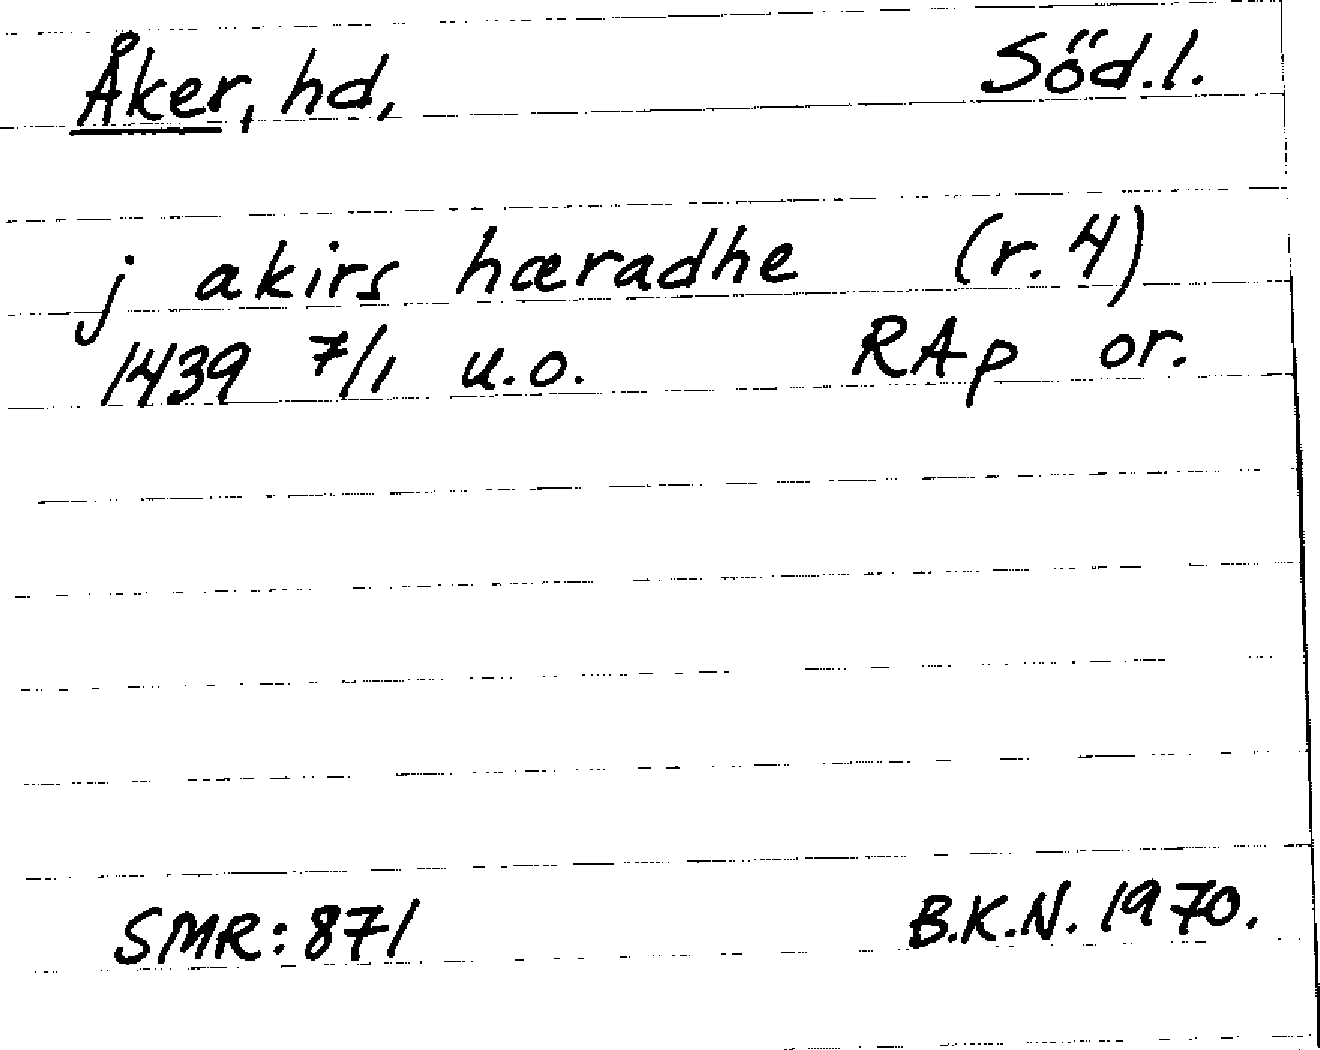 Åker, hd, Söd.l.
j akirs hæradhe (r. 4)
1439 7/1 u.o. RAp or.
SMR: 871 B.K.N. 1970.